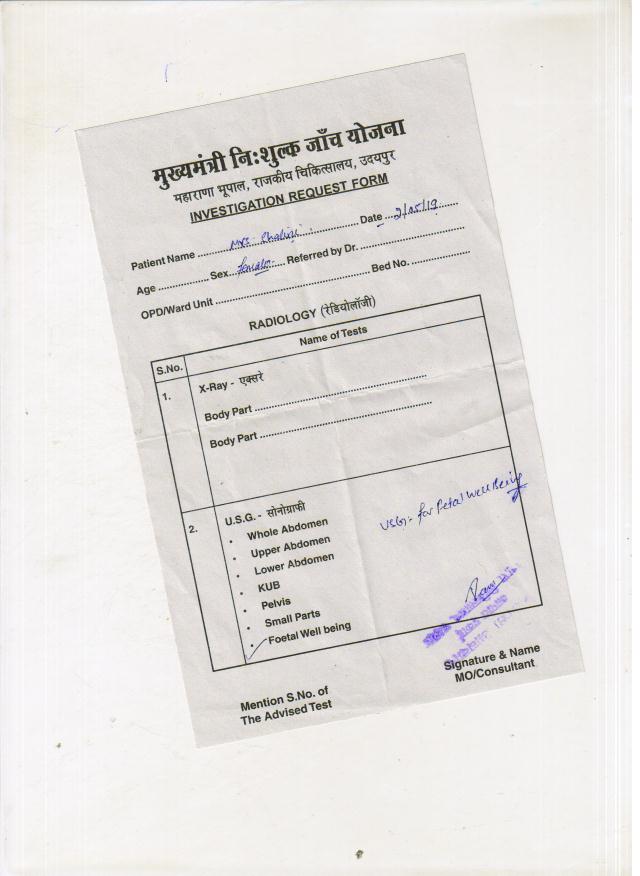 मुख्यमंत्री निःशुल्क जाँच योजना
महाराणा भूपाल, राजकीय चिकित्सालय, उदयपुर
INVESTIGATION REQUEST FORM
Patient Name .......... Mrs. .......... Date .. 2/05/19 ..........
Age .......... Sex.. female .......... Referred by Dr. ..........
OPD/Ward Unit .......... Bed No. ..........
RADIOLOGY (रेडियोलॉजी)
S.No. Name of Tests
1. X-Ray - एक्सरे
Body Part ..........
Body Part ..........
2. U.S.G. - सोनोग्राफी
USG:- for Fetal Well Being
• Whole Abdomen
• Upper Abdomen
• Lower Abdomen
• KUB
• Pelvis
• Small Parts
• Foetal Well being
Signature & Name
MO/Consultant
Mention S.No. of
The Advised Test